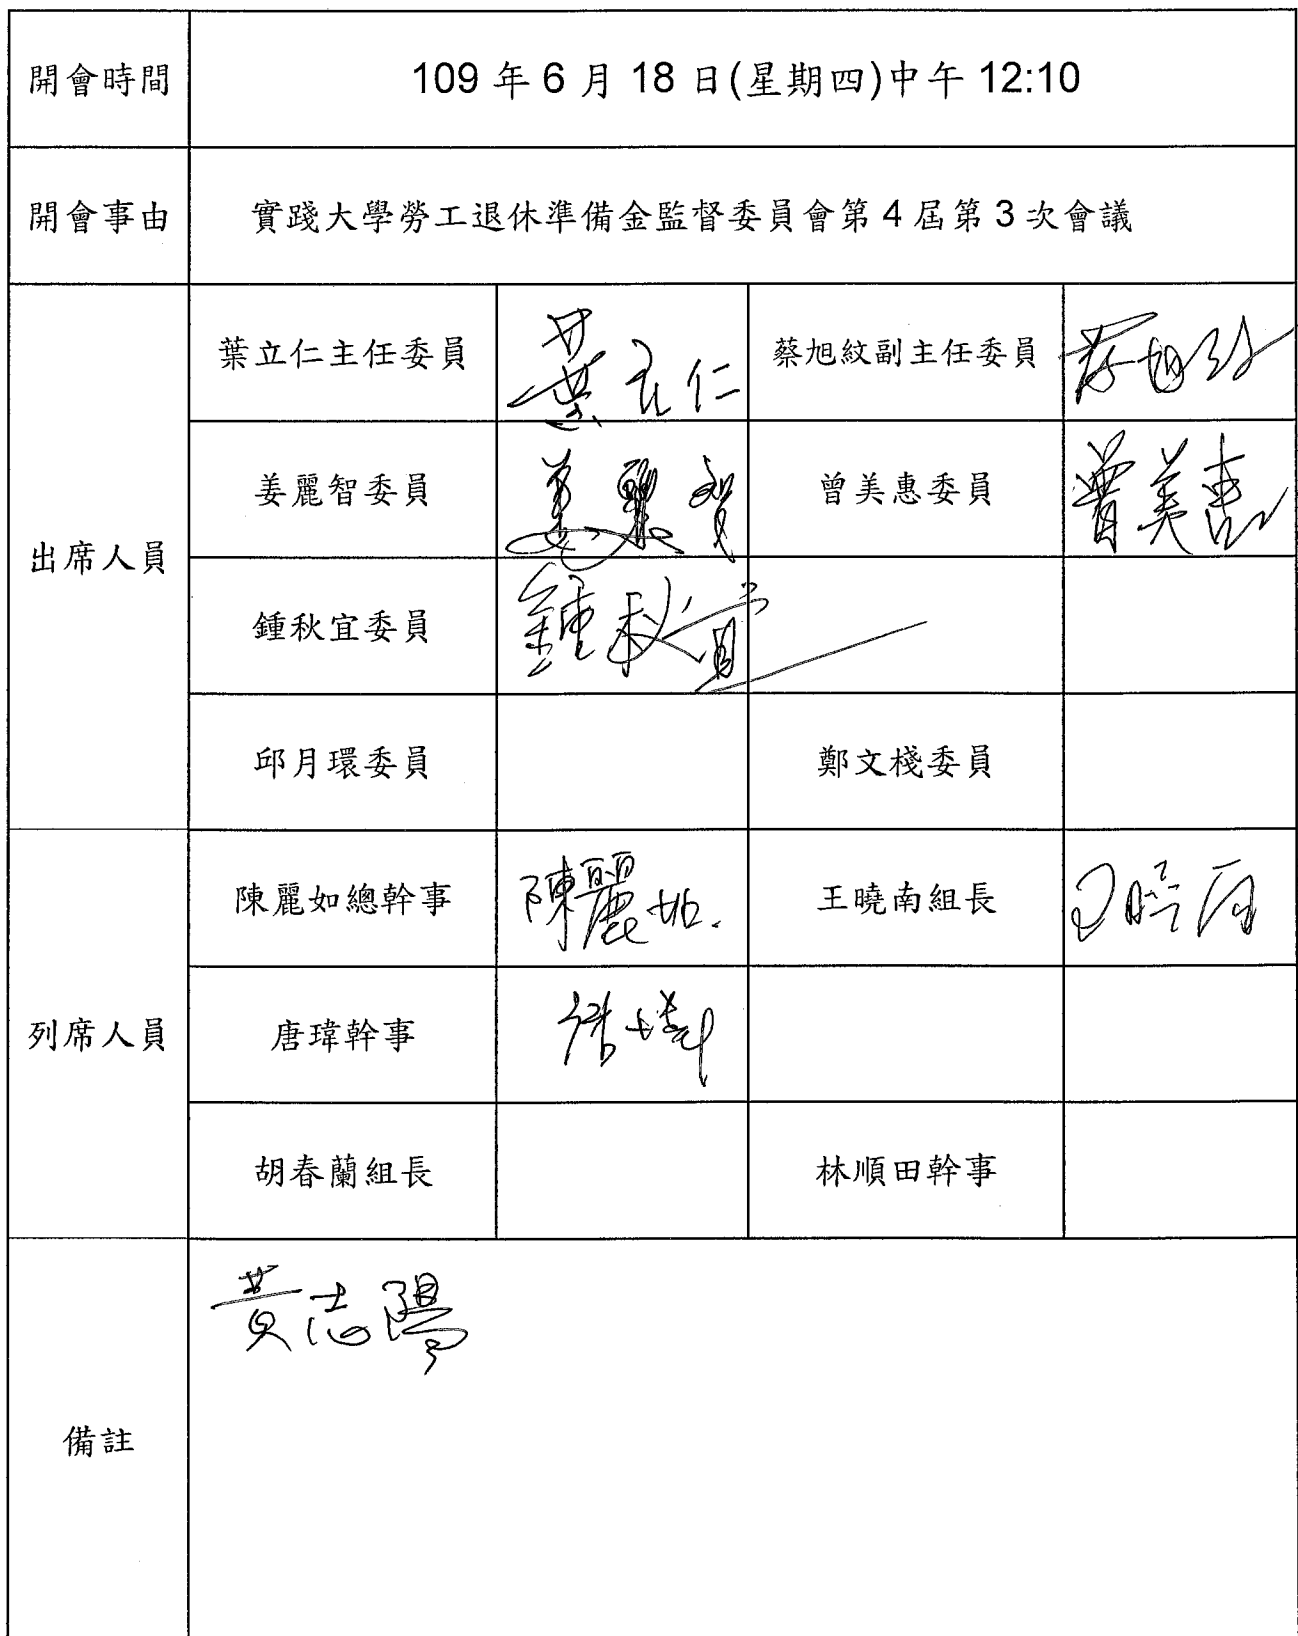 開會時間 109 年 6 月 18 日(星期四)中午 12:10
開會事由 實踐大學勞工退休準備金監督委員會第 4 屆第 3 次會議
葉立仁主任委員 葉立仁 蔡旭紋副主任委員 蔡旭紋
姜麗智委員 姜麗智 曾美惠委員 曾美惠
出席人員
鍾秋宜委員 鍾秋宜
邱月環委員 鄭文棧委員
陳麗如總幹事 陳麗如 王曉南組長 王曉南
列席人員 唐瑋幹事 唐瑋
胡春蘭組長 林順田幹事
黃志陽
備註